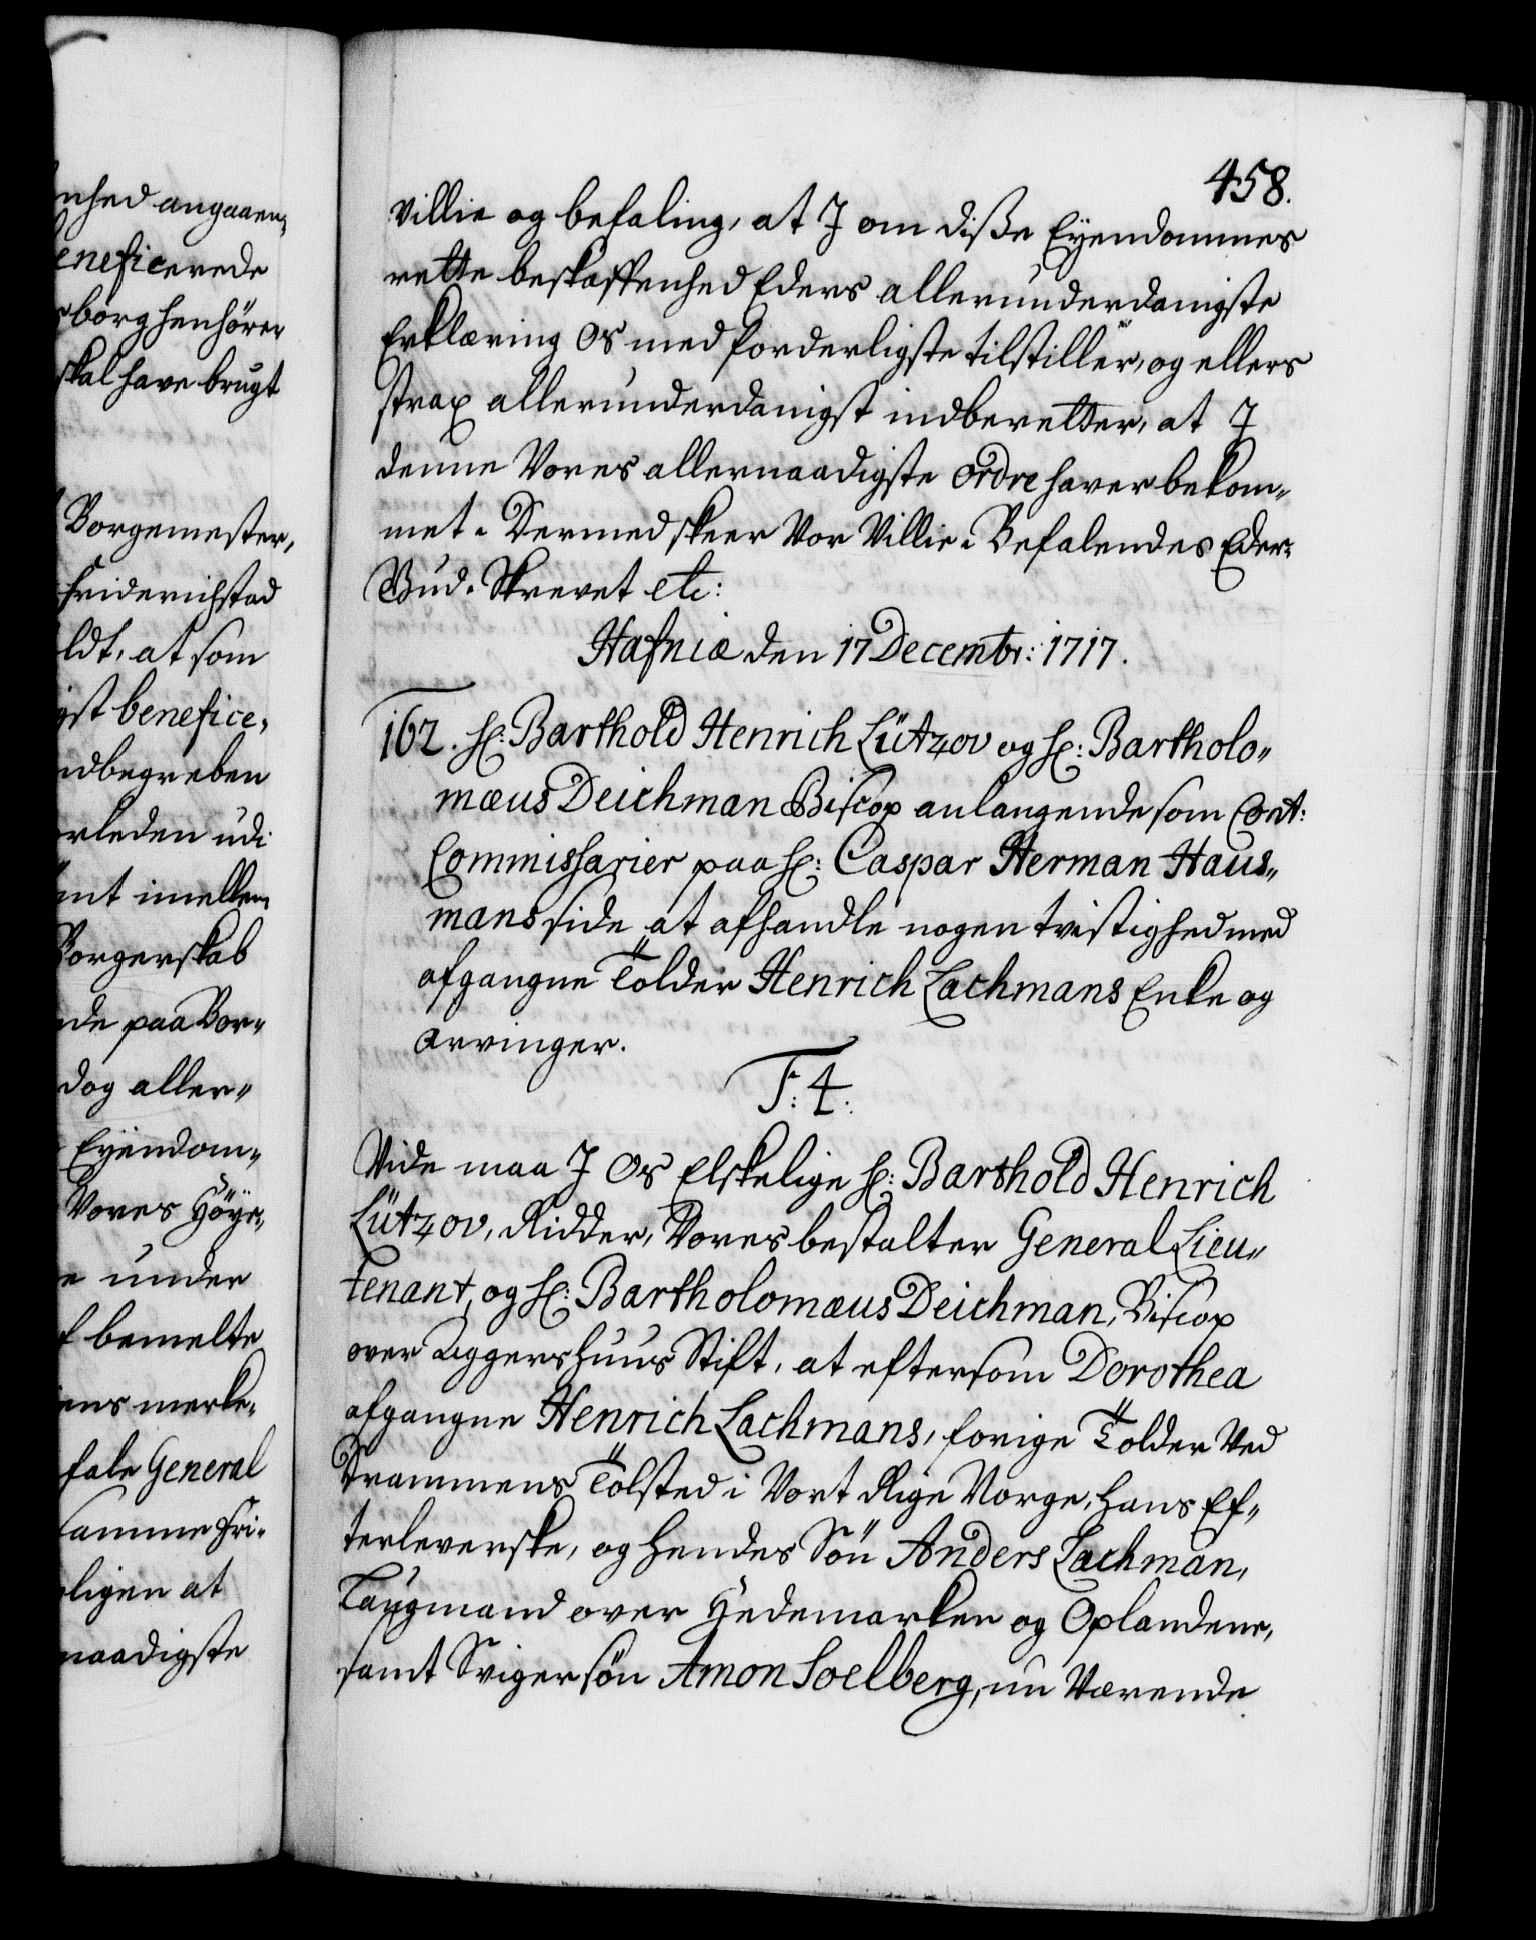 nhed angaaen,
eneficerede
sborg henhörer
skal have brugt
Borgemester,
Friderichstad
ldt, at som
igst benefice,
ndbegreben
orleden udi
imellem
Borgerskab
nde paa Bor„
dog aller„
Eyendom„
Vores Höye,
e under
f bemelte
ens merke,
fale General
samme Fri-
ligen at
naadigste
458.
Villie og befaling, at J om diße Eyendommes
rette beskaffenhed Eders allerunderdanigste
Erklæring Os med forderligste tilstiller, og ellers
strax allerunderdanigst indberetter, at J
denne Vores allernaadigste Ordre haver bekom„
met. Dermed skeer Vor Villie. Befalendes Eder
Gud. Skrevet etc:
Hafniæ den 17 Decembr: 1717.
162. H: Barthold Henrich Lützov og H: Bartholo„
mæus Deichman Biscop anlangende som Cont:
Commissarier paa H: Caspar Herman Haus„
mans side at afhandle nogen tvistighed med
afgangne Tolder Henrich Lachmans Enke og
arvinger.
F: 4.
Vide maa J Os Elskelige H: Barthold Henrich
Lützov, Ridder, Vores bestalter General Lieu„
tenant, og H: Bartholomæus Deichman, Biscop
over Aggershuus Stift, at eftersom Dorothea
afgangne Henrich Lachmans, forige Tolder Ved
Drammens Tolsted i Vort Rige Norge, hans Ef„
terleverske, og hendes Sön Anders Lachman,
Laugmand over Hedemarken og Oplandene,
samt Svigersön Amon Soelberg, nu Værende